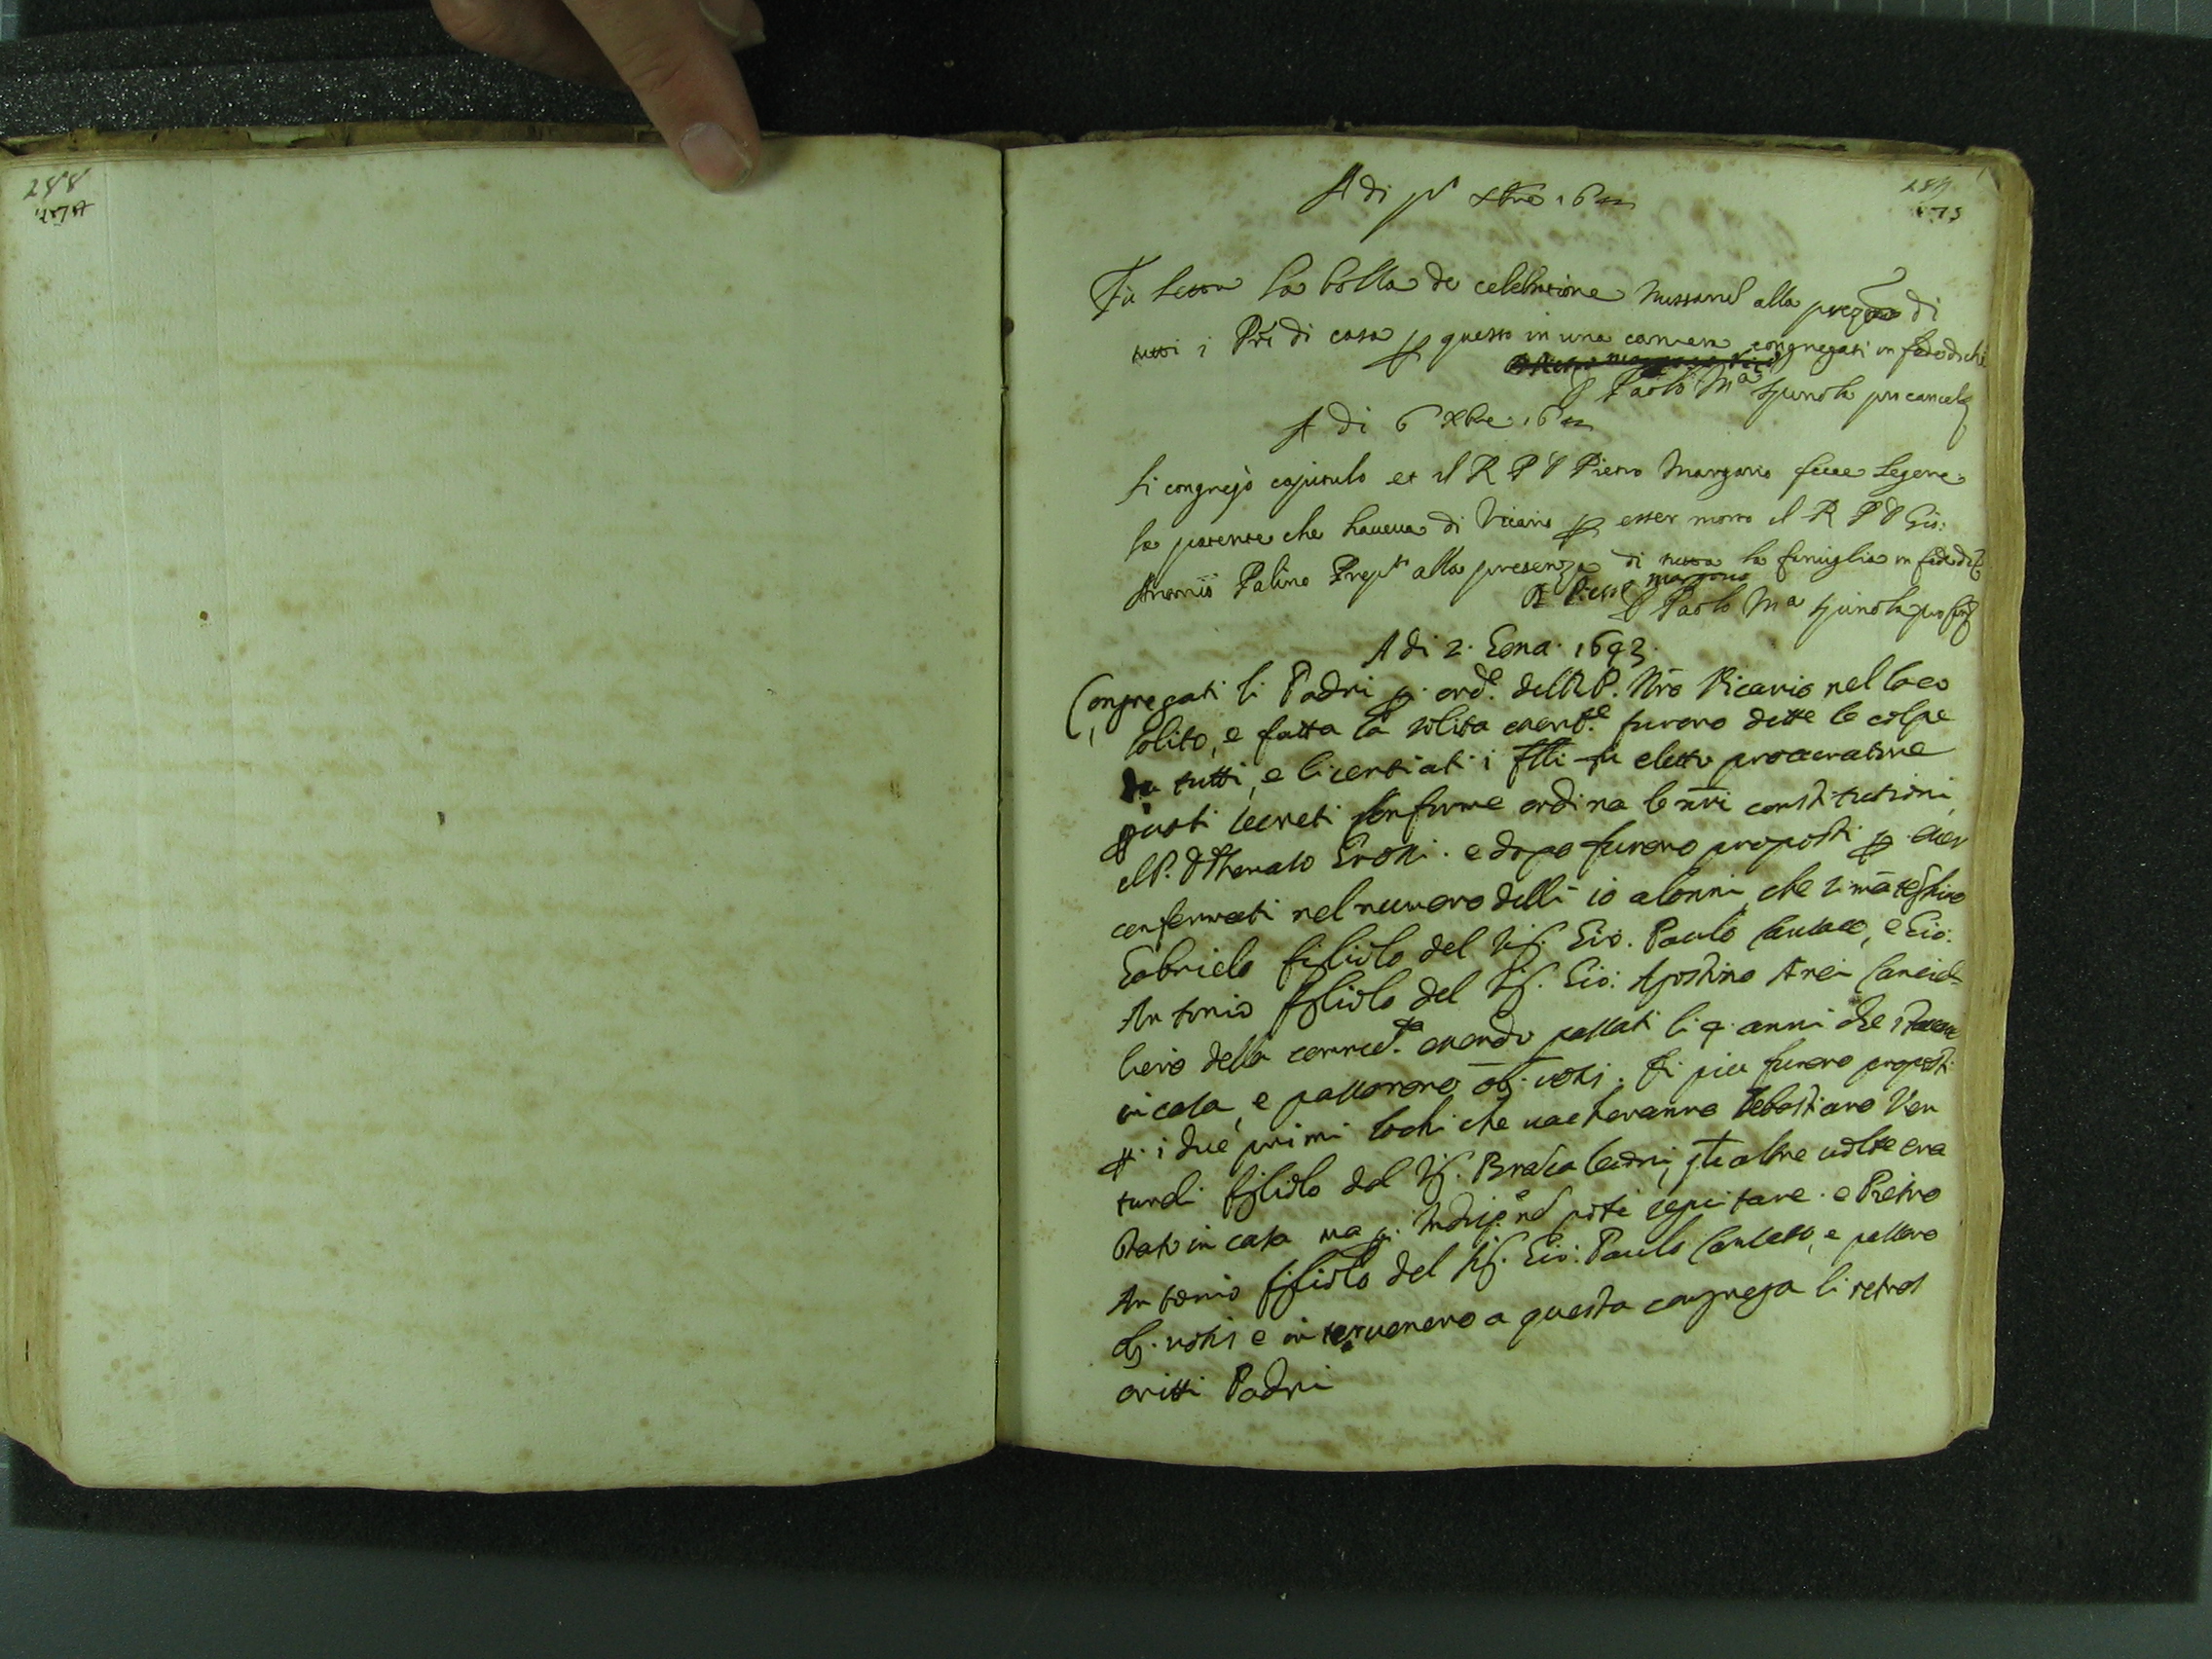 288
289
175
A di pº xbre 1642
Fù letta la bolla de celebratione missarum alla preza di
tutti i Pri di casa p questo in una camera congregati in fede di che
D Paolo Mª spinola pro cancelº
A di 6 xbre 1642
Si congregò capitulo et il R P D Pietro Margario fece legere
la patente che haueua di Vicario p esser morto il R P D Gio:
Antonio Palino Prepto alla presenza di tutta la famiglia in fede di
D Pietro margario
D Paolo Mª spinola pro
A di 2. Gena. 1643.
Congregati li Padri p. ord.e dell R P. Nro Vicario nel loco
solito, e fatta la solita orat.e furono dette le colpe
da tutti, e licentiati i fflli fu eletto procuratore
p uoti secreti conforme ordina le nre constitutioni
il P. D Thomaso Grossi. e dopo furono proposti p. esser
confermati nel numero delli 10 alonni, che si
Gabriele figliolo del Sig. Gio. Paulo e Gio:
Antonio figliolo del Sig. Gio: Agostino Cancel
liero della essendo passati li 4. anni che
in casa, e passorono oes. uotis. Di piu furono proposti
p. i due primi lochi che uacheranno Sebastiano Ven
turoli figliolo del Sig. altre uolte era
stato in casa ma p. non potè seguitare. e Pietro
Antonio figliolo del Sig. Gio: Paulo e passoro
oes. uotis e interuenero a questa congrega li setos
critti Padri